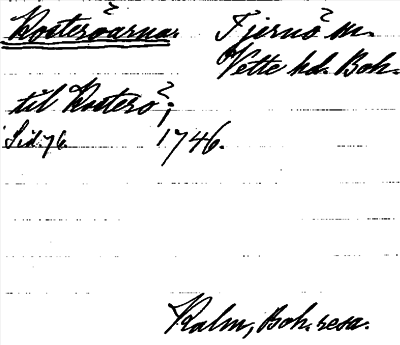 Kosteröarna Tjernö sn.
Vette hd. Boh.
til Kosterö;
Sid. 76. 1746.
Kalm, Boh. resa.